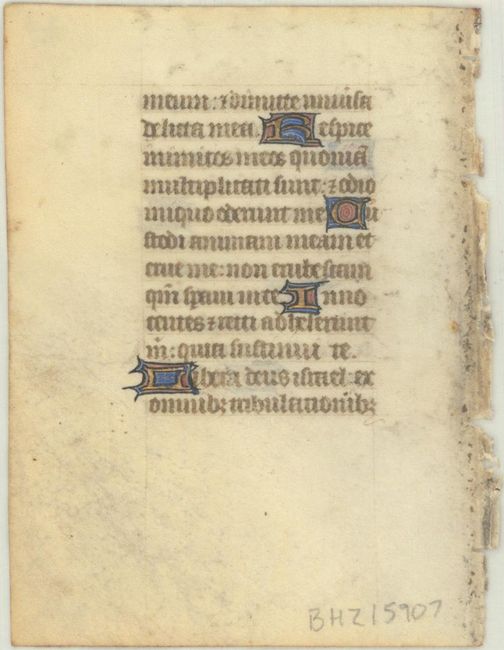 meum: ⁊ dimitte univ̉sa
delicta mea. Respice
inimicos meos quoniā
multiplicati sunt: ⁊ odio
iniquo oderunt me. Cu
stodi animam meam et
erue me: non erubescam
qm̄ speravi in te. Inno
centes ⁊ recti adheserunt
m̄: quia sustinui te.
Libera deus israel: ex
omnibꝫ tribulationibꝫ
BHZ15907